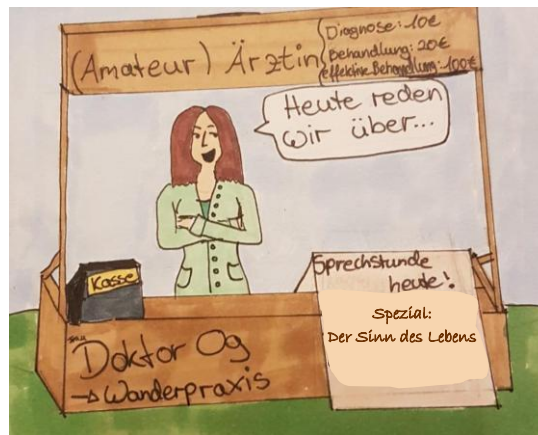 (Amateur) Ärztin
Diagnose: 10€
Behandlung: 20€
effektive Behandlung: 100€
Heute reden
wir über...
Kasse
Sprechstunde
heute!
Spezial:
Der Sinn des Lebens
Doktor Og
→ Wanderpraxis